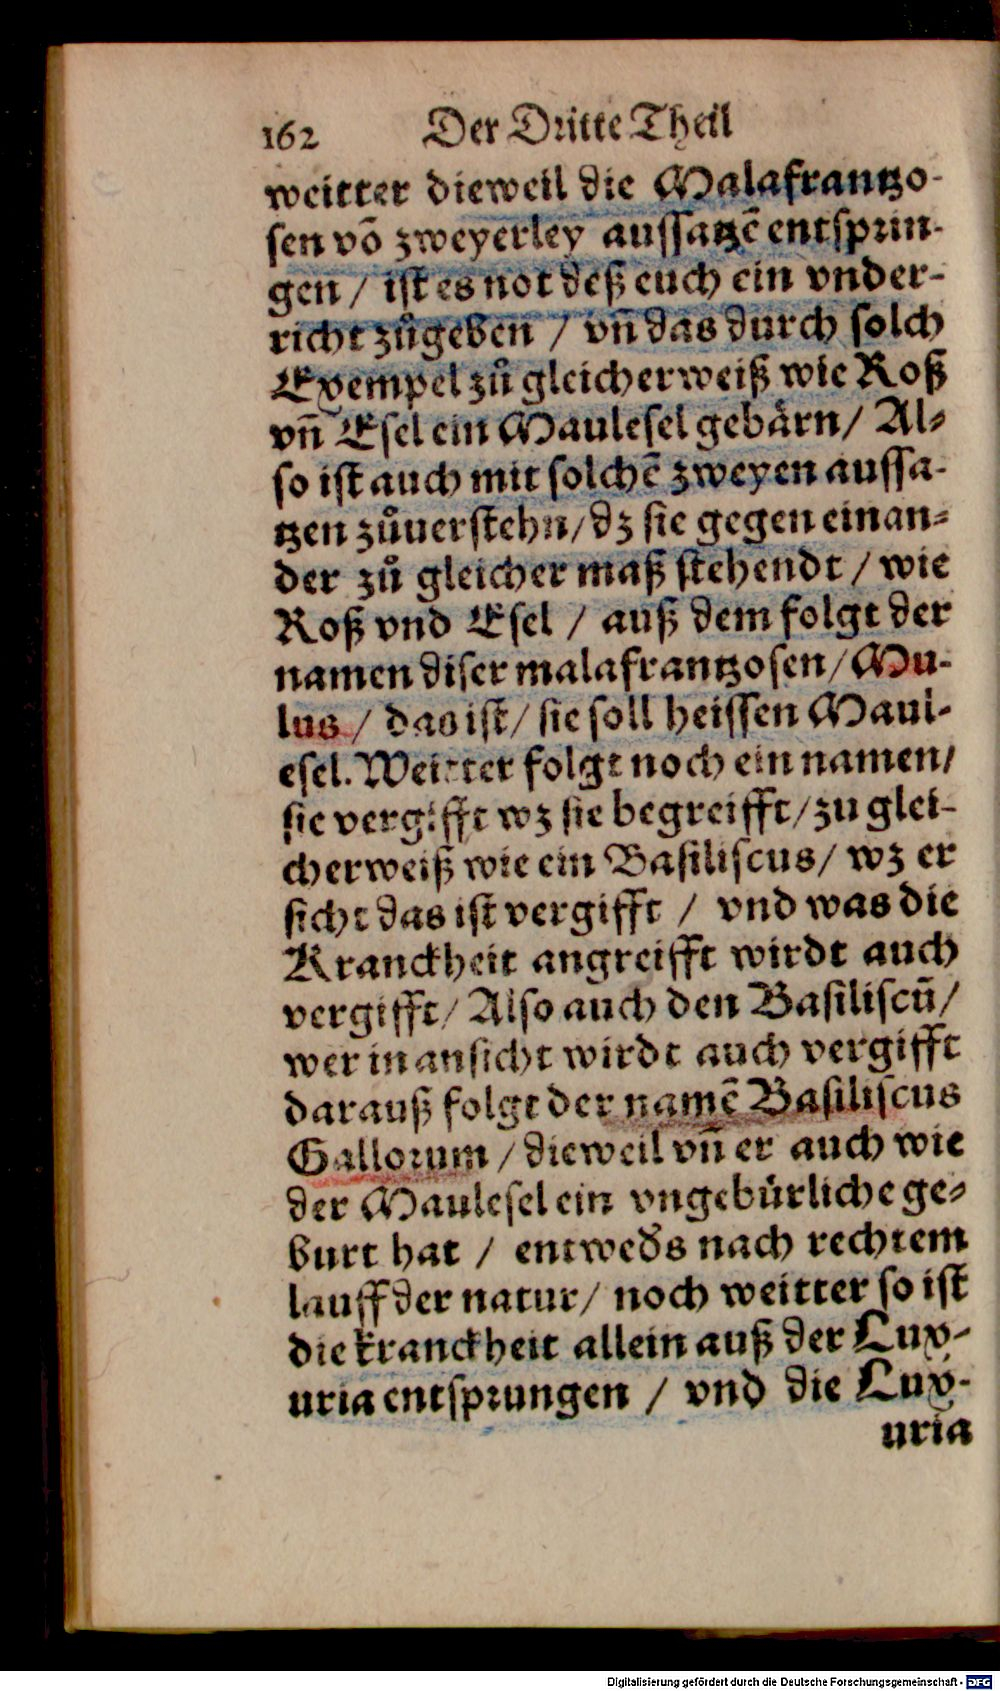 162 Der Dritte Theil
weitter dieweil die Malafrantzo-
sen võ zweyerley aussatzẽ entsprin-
gen / ist es not deß euch ein vnder-
richt zůgeben / vñ das durch solch
Exempel zů gleicherweiß wie Roß
vñ Esel ein Maulesel gebårn / Al-
so ist auch mit solchẽ zweyen aussa-
tzen zůuerstehn / dz sie gegen einan-
der zů gleicher maß stehendt / wie
Roß vnd Esel / auß dem folgt der
namen diser malafrantzosen / Mu-
lus / das ist / sie soll heissen Maul-
esel. Weitter folgt noch ein namen /
sie vergifft wz sie begreifft / zu glei-
cherweiß wie ein Basiliscus / wz er
sicht das ist vergifft / vnd was die
Kranckheit angreifft wirdt auch
vergifft / Also auch den Basiliscũ /
wer in ansicht wirdt auch vergifft
darauß folgt der namẽ Basiliscus
Gallorum / dieweil vñ er auch wie
der Maulesel ein vngebürliche ge-
burt hat / entweďs nach rechtem
lauff der natur / noch weitter so ist
die kranckheit allein auß der Lux-
uria entsprungen / vnd die Lux-
uria
Digitalisierung gefördert durch die Deutsche Forschungsgemeinschaft - DFG